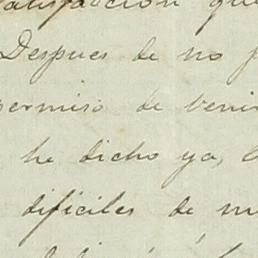 satisfaccion que
Despues de no p
permiso de veni
he dicho ya,
dificiles de m